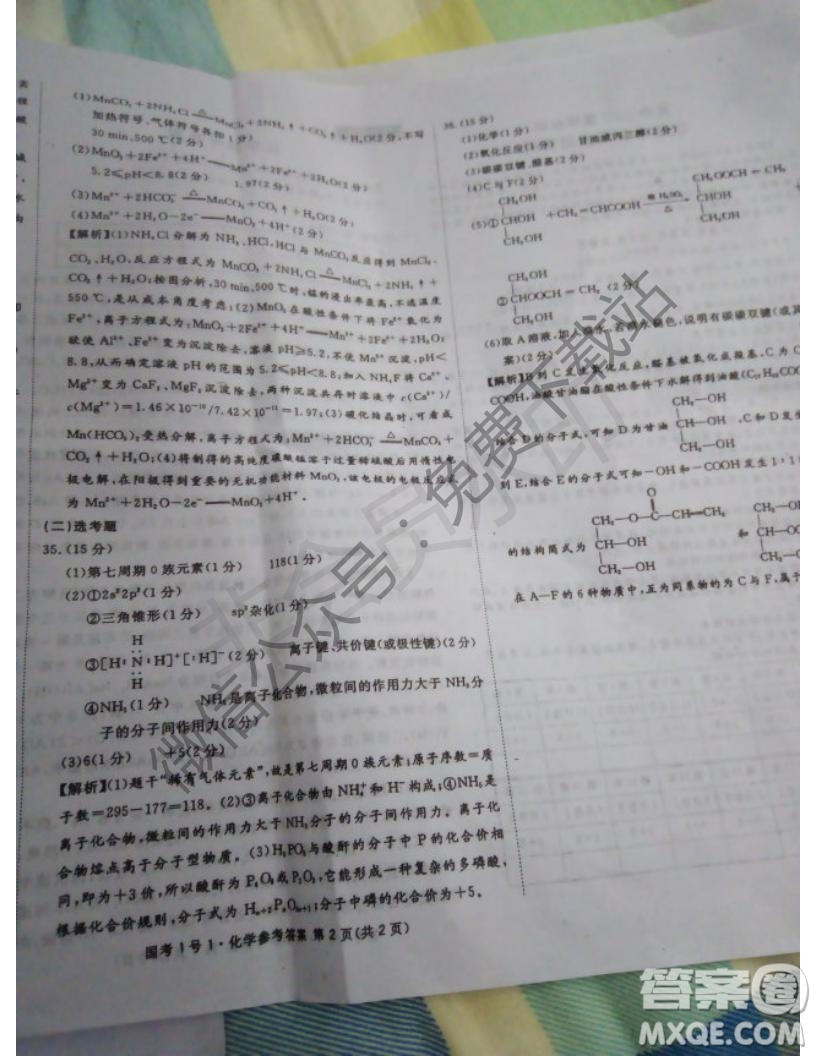 (1)MnCO₃+2NH₄Cl △ MnCl₂+2NH₃↑+CO₂↑+H₂O(2分,不写
加热符号、气体符号各扣1分)
30 min,500℃(2分)
(2)MnO₂+2Fe²⁺+4H⁺══Mn²⁺+2Fe³⁺+2H₂O(2分)
5.2≤pH<8.8(2分) 1.97(2分)
(3)Mn²⁺+2HCO₃⁻ △ MnCO₃+CO₂↑+H₂O(2分)
(4)Mn²⁺+2H₂O-2e⁻══MnO₂+4H⁺(2分)
【解析】(1)NH₄Cl分解为NH₃、HCl,HCl与MnCO₃反应得到MnCl₂、
CO₂、H₂O,反应方程式为MnCO₃+2NH₄Cl △ MnCl₂+2NH₃↑+
CO₂↑+H₂O;按图分析,30 min、500℃时,锰的浸出率最高,不选温度
550℃,是从成本角度考虑;(2)MnO₂在酸性条件下将Fe²⁺氧化为
Fe³⁺,离子方程式为:MnO₂+2Fe²⁺+4H⁺══Mn²⁺+2Fe³⁺+2H₂O;
欲使Al³⁺、Fe³⁺变为沉淀除去,溶液pH≥5.2,不使Mn²⁺沉淀,pH<
8.8,从而确定溶液pH的范围为5.2≤pH<8.8;加入NH₄F将Ca²⁺、
Mg²⁺变为CaF₂、MgF₂沉淀除去,两种沉淀共存时溶液中c(Ca²⁺)/
c(Mg²⁺)=1.46×10⁻¹⁰/7.42×10⁻¹¹=1.97;(3)碳化结晶时,可看成
Mn(HCO₃)₂受热分解,离子方程式为:Mn²⁺+2HCO₃⁻ △ MnCO₃+
CO₂↑+H₂O;(4)将制得的高纯度碳酸锰溶于过量稀硫酸后用惰性电
极电解,在阳极得到重要的无机功能材料MnO₂,该电极的电极反应式
为Mn²⁺+2H₂O-2e⁻══MnO₂+4H⁺。
(二)选考题
35.(15分)
(1)第七周期0族元素(1分) 118(1分)
(2)①2s²2p³(1分)
②三角锥形(1分) sp³杂化(1分)
H
③[H:N:H]⁺[:H]⁻(2分) 离子键、共价键(或极性键)(2分)
H
④NH₅(1分) NH₅是离子化合物,微粒间的作用力大于NH₃分
子的分子间作用力(2分)
(3)6(1分) +5(2分)
【解析】(1)题干“稀有气体元素”,故是第七周期0族元素;原子序数=质
子数=295-177=118。(2)③离子化合物由NH₄⁺和H⁻构成;④NH₅是
离子化合物,微粒间的作用力大于NH₃分子的分子间作用力。离子化
合物熔点高于分子型物质。(3)H₃PO₃与酸酐的分子中P的化合价相
同,即为+3价,所以酸酐为P₄O₆或P₂O₃,它能形成一种复杂的多磷酸,
根据化合价规则,分子式为Hₙ₊₂PₙO₃ₙ₊₁;分子中磷的化合价为+5。
国考1号1·化学参考答案 第2页(共2页)
36.(15分)
(1)化学(1分)
(2)氧化反应(1分) 甘油或丙三醇(2分)
(3)碳碳双键、醛基(2分)
(4)C与F(2分)
CH₂OH CH₂OOCH═CH₂
(5)①CHOH +CH₂═CHCOOH 浓H₂SO₄ △ CHOH +
CH₂OH CH₂OH
CH₂OH
②CHOOCH═CH₂(2分)
CH₂OH
(6)取A溶液,加入溴水,若溴水褪色,说明有碳碳双键(或其
案)(2分)
【解析】B到C发生氧化反应,醛基被氧化成羧基,C为C
COOH,油酸甘油酯在酸性条件下水解得到油酸(C₁₇H₃₃CO
CH₂—OH
结合D的分子式,可知D为甘油 CH—OH ,C和D发生
CH₂—OH
到E,结合E的分子式可知—OH和—COOH发生1:1
O
CH₂—O—C—CH═CH₂ CH₂—O
的结构简式为 CH—OH 和 CH—O
CH₂—OH CH₂—O
在A—F的6种物质中,互为同系物的为C与F,属于
非会员水印
微信公众号:免费下载站
答案圈
MXQE.COM